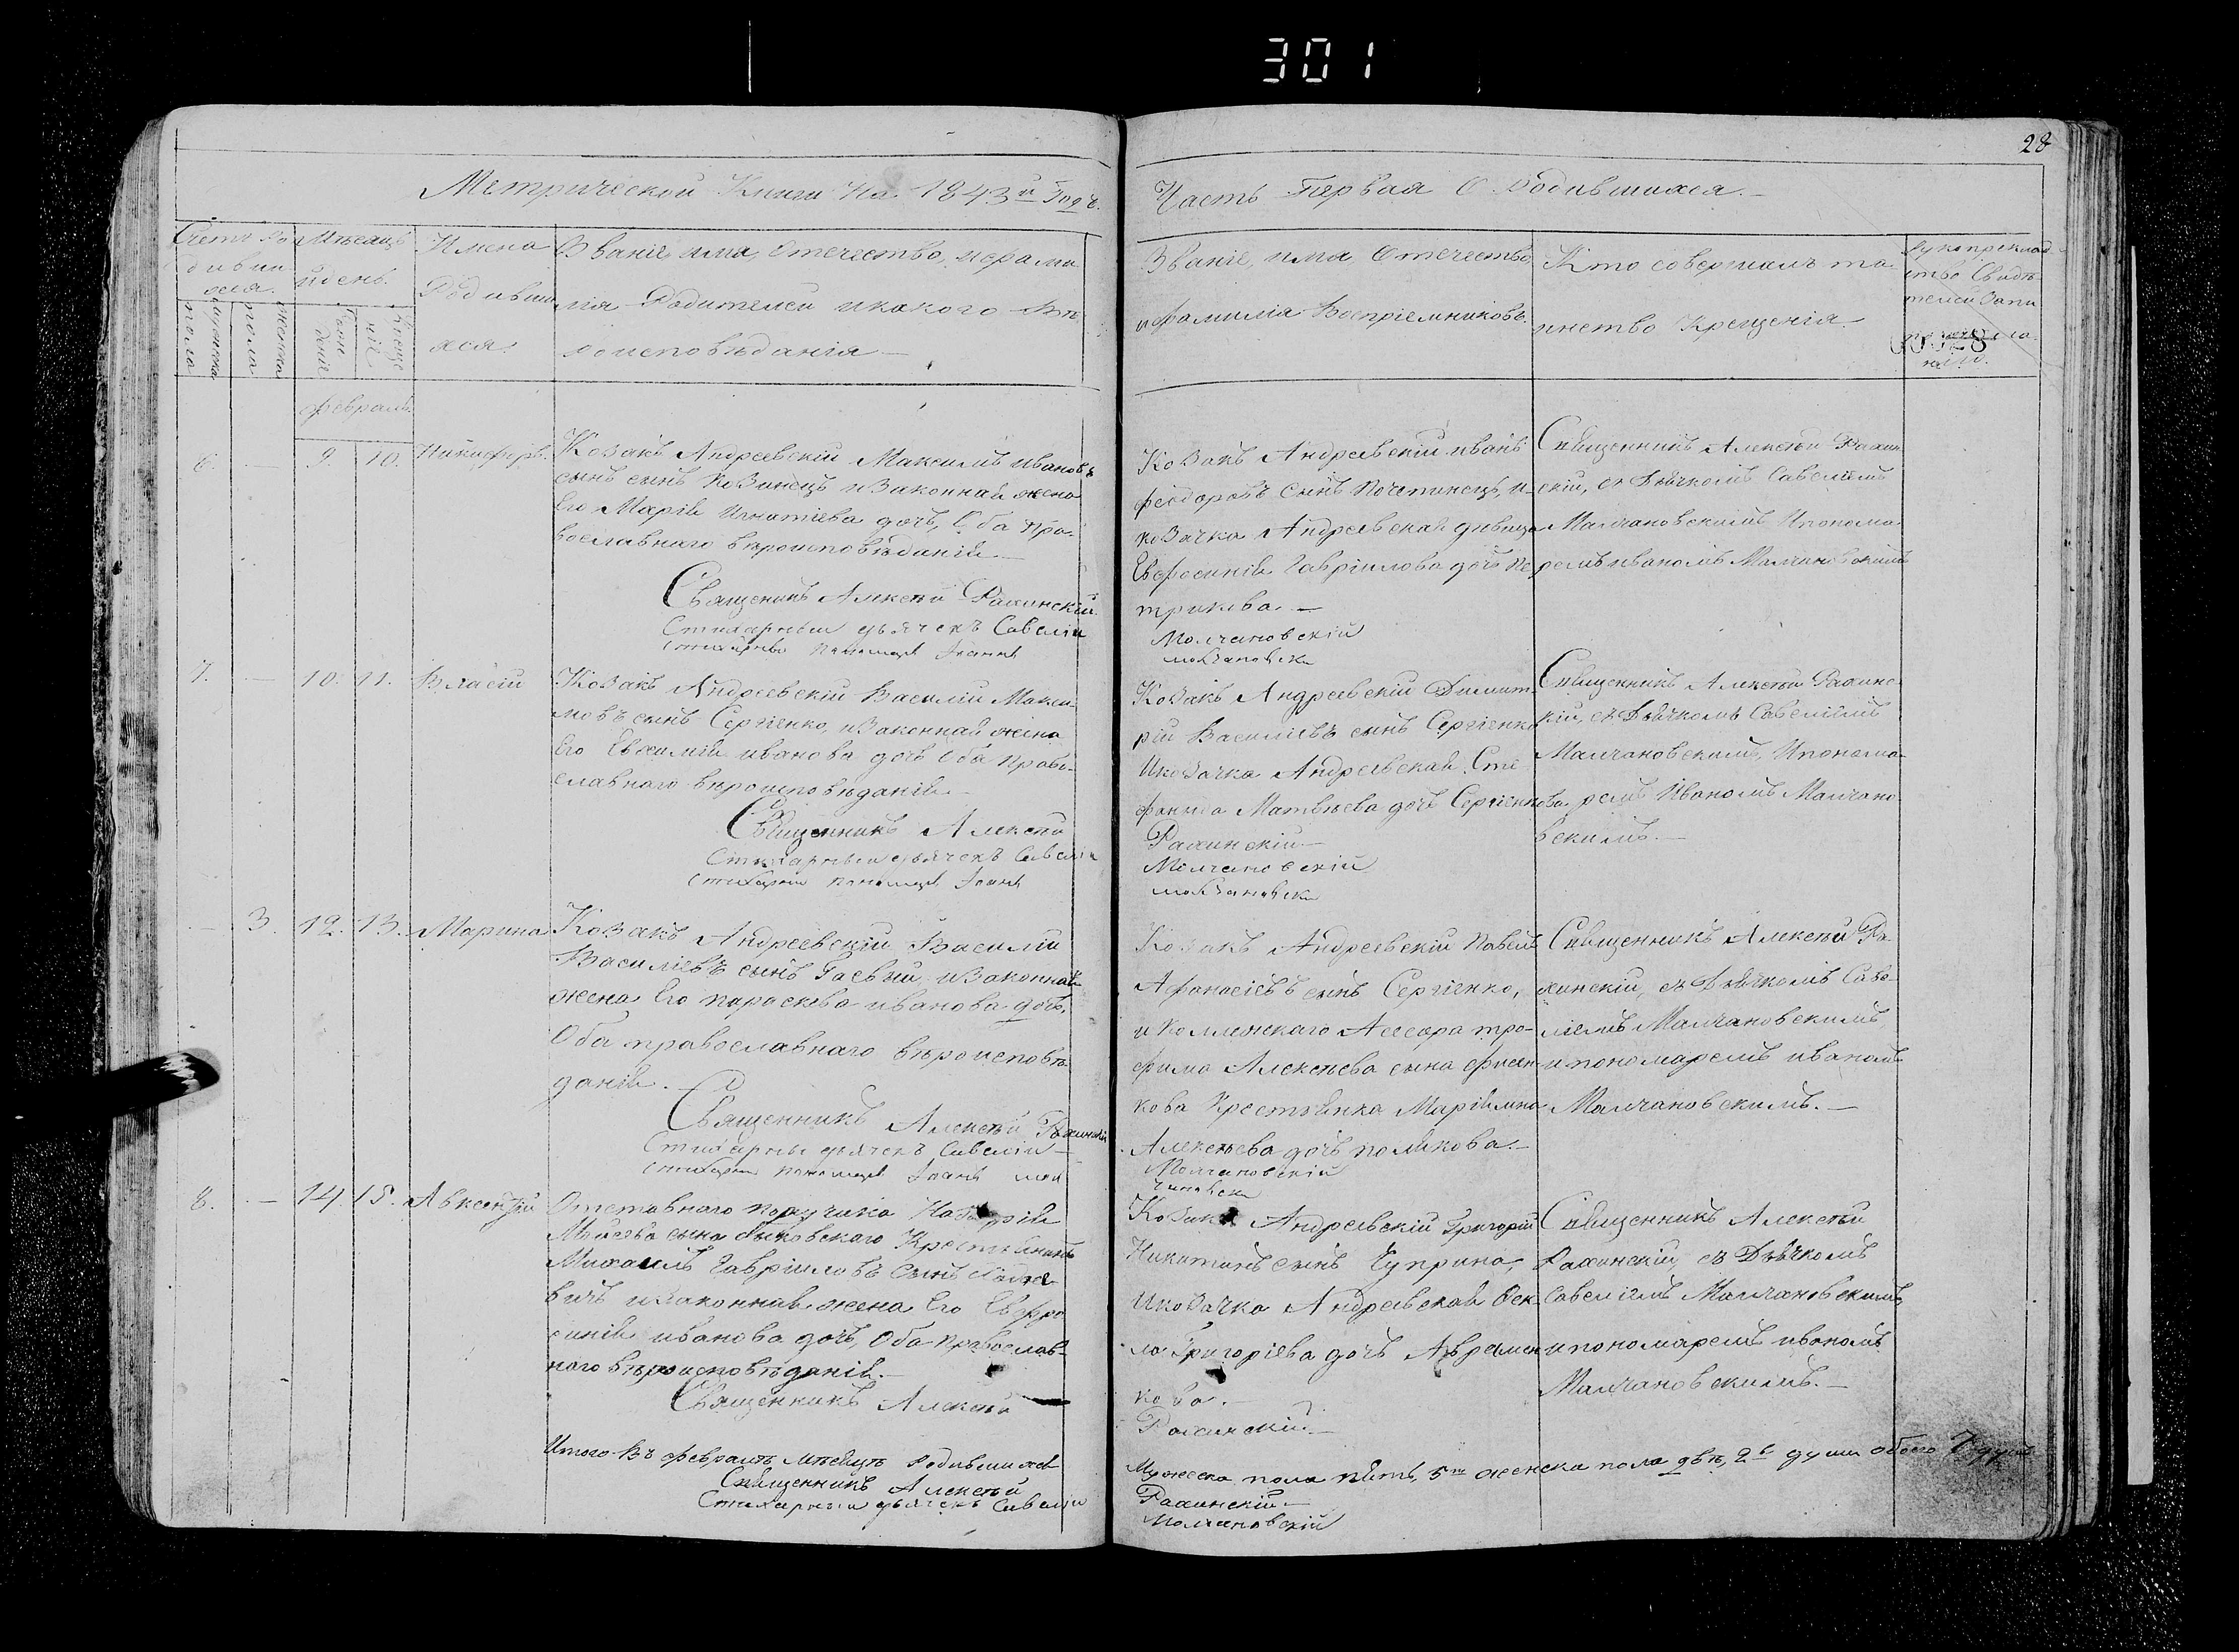 301
28
Метрической Книги На 1843й Годъ.
Часть Первая О Родившихся.
Счетъ Ро
дивши
хся.
Мѣсяцъ
и день.
Имена
Родивши
хся.
Званіе, имя, Отечество, и фами
лія Родителей и какого Вѣ
роисповѣданія
Званіе, имя Отечество
и фамилія Воспріемниковъ.
Кто совершалъ та
инство Крещенія.
Рукоприклад
ство Свидѣ
телей Запи
мужеска
пола
женска
пола
Рож
деніе
Креще
ніе
февраль.
6. — 9. 10. Никифоръ.
Козакъ Андреевскій Максимъ Ивановъ
сынъ Козинецъ и Законная жена
Его Марія Игнатіева дочь, Оба Пра-
вославнаго вѣроисповѣданія.
Священникъ Алексѣй Рахинскій
Стихарный дьячекъ Савелій
Стихарный Пономарь Іоаннъ
Козакъ Андреевскій Иванъ
Феодоровъ сынъ Почепинецъ, и
козачка Андреевская дѣвица
Евфросинія Гавріилова дочь Пе
трикова. —
Молчановскій
Молчановскій
Священникъ Алексѣй Рахин
скій, съ Дьячкомъ Савеліемъ
Малчановскимъ И понома
ремъ Иваномъ Малчановскимъ
7. — 10. 11. Власій
Козакъ Андреевскій Василій Макси-
мовъ сынъ Сергіенко, и Законная жена
Его Евфимія Иванова дочь Оба Право-
славнаго вѣроисповѣданія.
Священникъ Алексѣй
Стихарный дьячекъ Савелій
Стихарный пономарь Іоаннъ
Козакъ Андреевскій Димит
рій Василіевъ сынъ Сергіенко
И козачка Андреевская Сте
фанида Матвѣева дочь Сергіенкова
Рахинскій
Молчановскій
Молчановскій
Священникъ Алексѣй Рахинс
кій, съ Дьячкомъ Савеліемъ
Малчановскимъ, И понома-
ремъ Иваномъ Малчано
вскимъ. —
— 3. 12. 13. Марина
Козакъ Андреевскій Василій
Василіевъ сынъ Гаевый, и Законная
жена Его Параскева Иванова дочь,
Оба православнаго вѣроисповѣ
данія.
Священникъ Алексѣй Рахинскій
Стихарный дьячекъ Савелій
Стихарный пономарь Іоаннъ Мол
Козакъ Андреевскій Павелъ
Афанасіевъ сынъ Сергіенко,
и Коллежскаго Ассесора Тро-
фима Алексѣева сына
кова Крестьянка
Алексѣева дочь Полякова.
Молчановскій
чановскій
Священникъ Алексѣй Ра-
хинскій, съ Дьячкомъ Саве-
ліемъ Малчановскимъ
и пономаремъ Иваномъ
Малчановскимъ. —
8. — 14. 15. Авксентій
Отставнаго Поручика Назарія
Моѵсеева сына Быковскаго Крестьянинъ
Михаилъ Гавріиловъ Сынъ
вичъ и Законная жена Его Евфро
синія Иванова дочь, Оба Православ-
наго вѣроисповѣданія.
Священникъ Алексѣй
Козакъ Андреевскій Григорій
Никитинъ сынъ Чуприна,
И козачка Андреевская Фек
ла Григоріева дочь Авремен
кова.
Рахинскій
Священникъ Алексѣй
Рахинскій, съ Дьячкомъ
Савеліемъ Малчановскимъ,
и пономаремъ Иваномъ
Малчановскимъ. —
Итого въ февралѣ мѣсяцѣ Родившихся
Мужеска пола пять, 5ть женска пола двѣ, 2ѣ души обоего 7 душъ
Священникъ Алексѣй
Рахинскій
Стихарный дьячекъ Савелій
Молчановскій